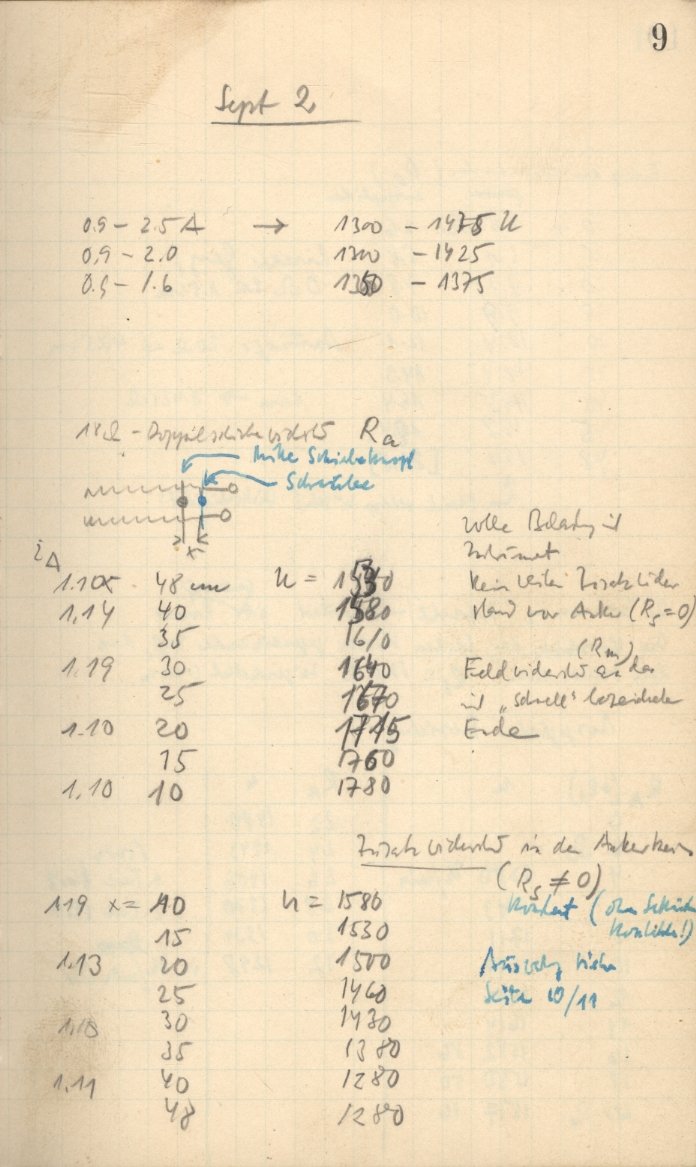 9
Sept 2
0.9 – 2.5 A → 1300 – 1475 U
0.9 – 2.0 1300 – 1425
0.9 – 1.6 1350 – 1375
18Ω – Doppelschiebewiderst Ra
Mitte Schiebeknopf
Schraube
x
i_A
1.10 48 cm n = 1540
volle Belastung ist
1.14 40 1580
kein weiter Zusatzwider
35 1610
stand vor Anker (Rs=0)
1.19 30 1640
(Rm)
25 1670
Feldwiderstd an das
1.10 20 1745
mit „schnell“ bezeichnete
15 1760
Ende
1.10 10 1780
Zusatzwiderstd in den Ankerkreis
(Rs ≠ 0)
1.19 x = 10 n = 1580
15 1530
1.13 20 1500
Auswertg siehe
25 1460
Seite 10/11
1.10 30 1430
35 1380
1.11 40 1280
48 1280